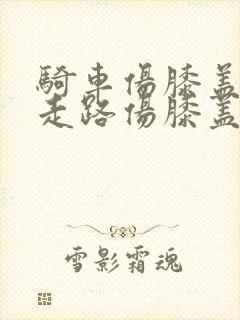 騎車傷膝蓋
走路傷膝蓋
雪影霜魂